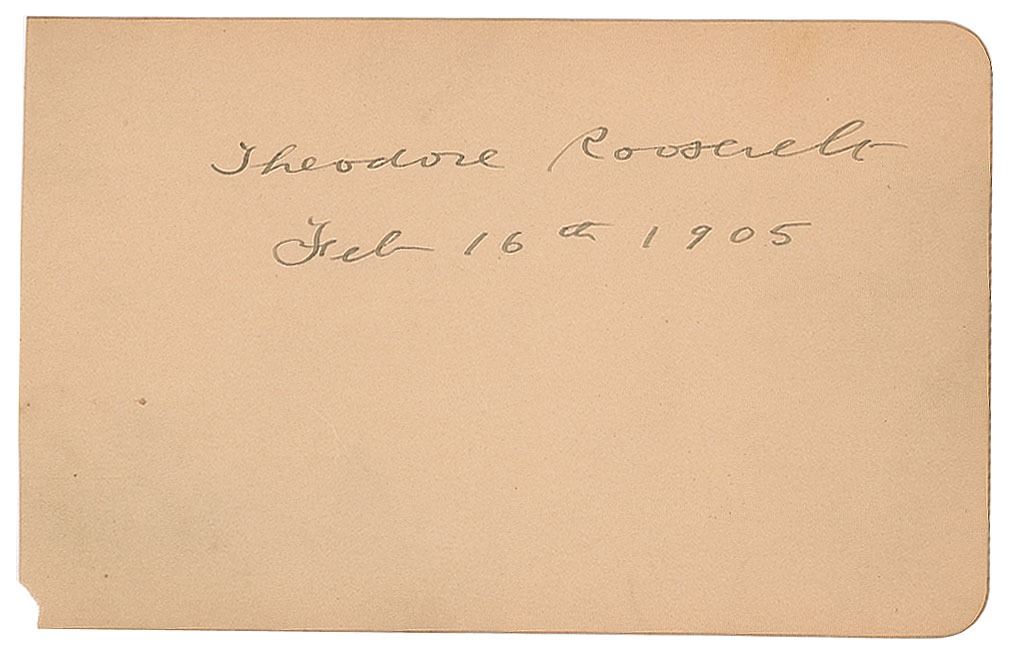 Theodore Roosevelt
Feb 16th 1905